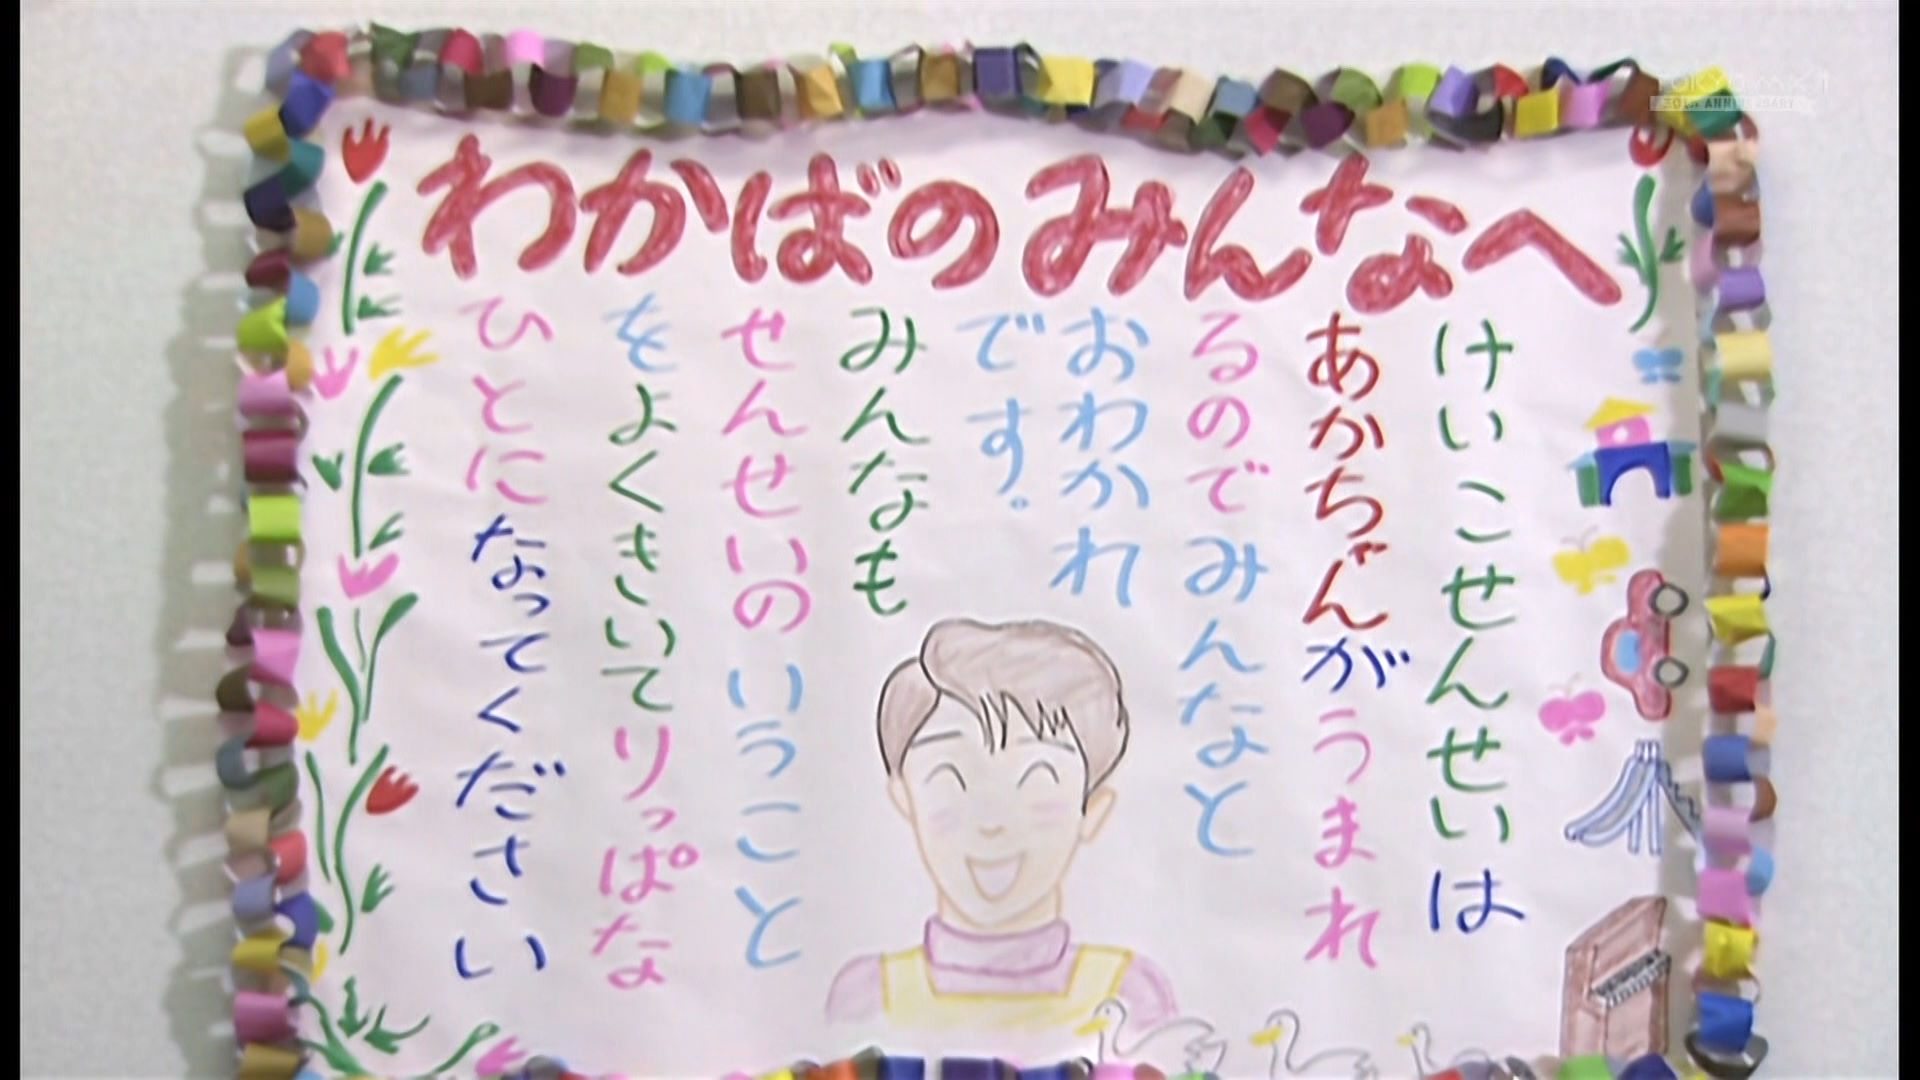 わかばのみんなへ
けいこせんせいは
あかちゃんがうまれ
るのでみんなと
おわかれ
です。
みんなも
せんせいのいうこと
をよくきいてりっぱな
ひとになってください
TOKYO MX1
30th ANNIVERSARY